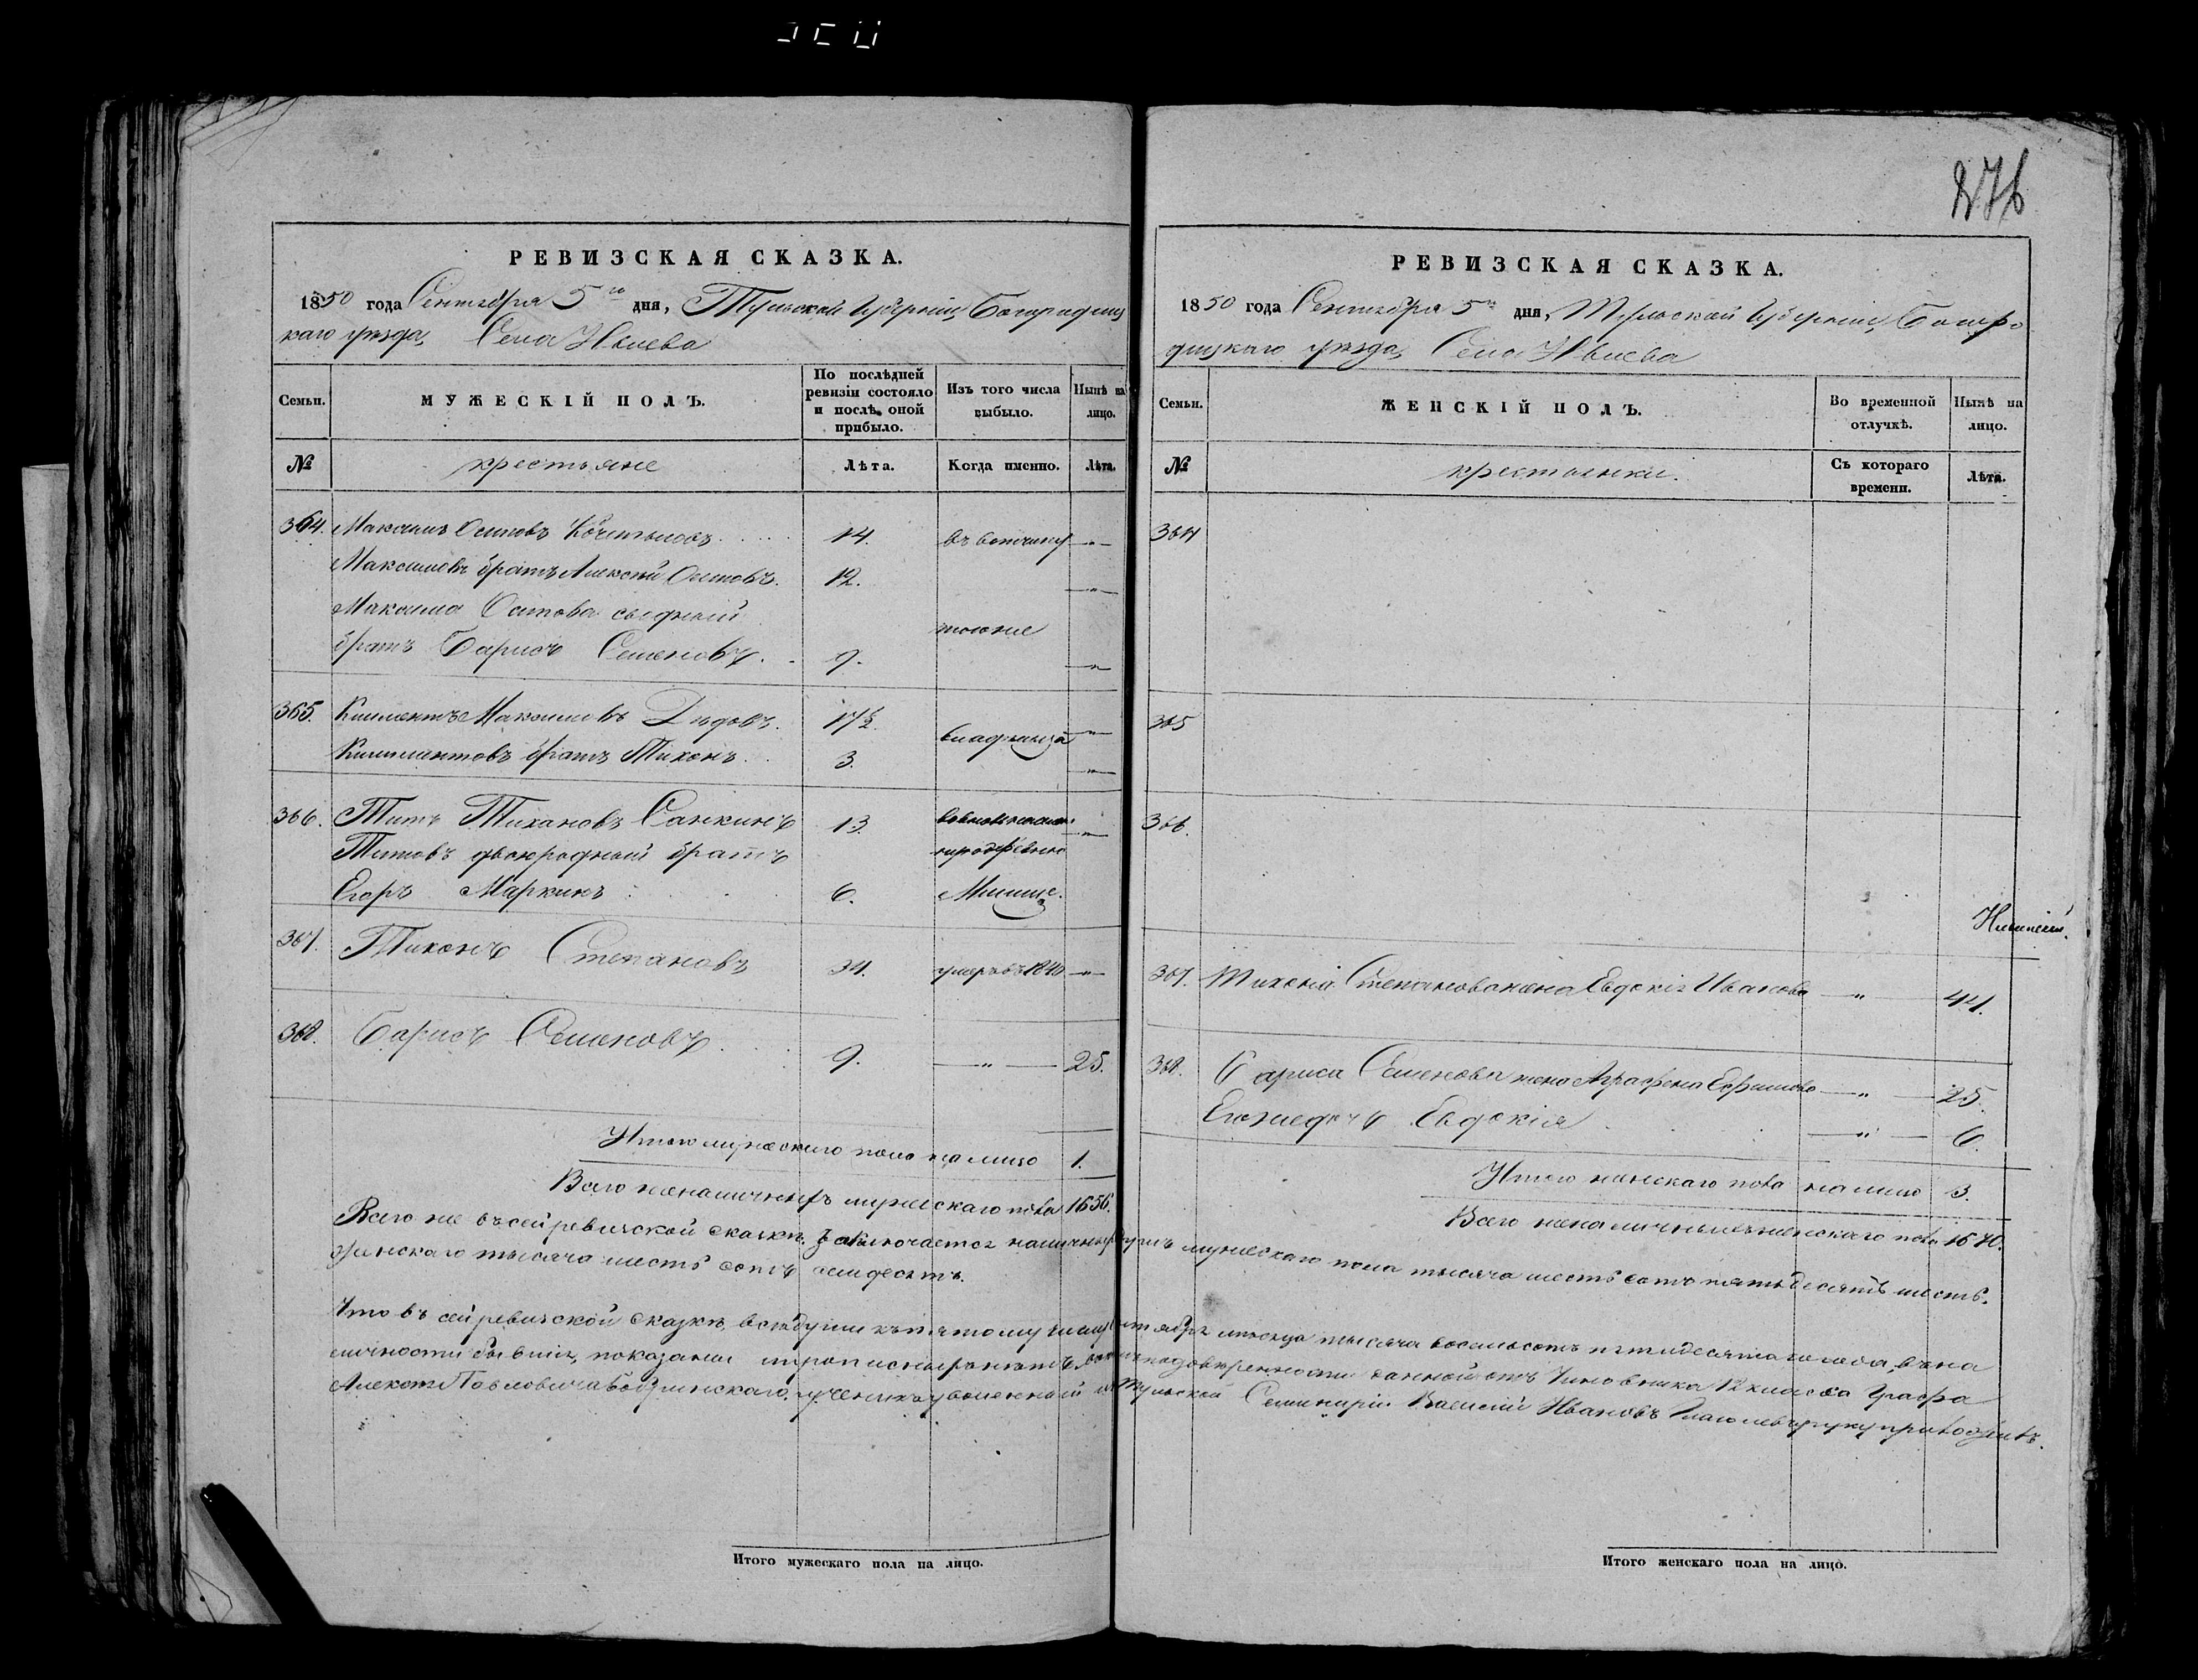 276
РЕВИЗСКАЯ СКАЗКА.
1850 года Сентября 5го дня, Тульской Губерніи, Богородиц
каго уѣзда, Села
Семьи.
МУЖЕСКІЙ ПОЛЪ.
По послѣдней
ревизіи состояло
и послѣ оной
прибыло.
Изъ того числа
выбыло.
Нынѣ на
лицо.
№
крестьяне
Лѣта.
Когда именно.
Лѣта.
364. Максимъ Осиповъ 14. въ вотчину — " —
Максимовъ братъ Алексѣй Осиповъ. 12. — " —
Максима Осипова сводный
братъ Борисъ Семеновъ. 9. тоже — " —
365. Климентъ Максимовъ Дѣдовъ. 17½. — " —
Климентовъ братъ Тихонъ. 3. — " —
366. Титъ Тихановъ Санкинъ 13. — " —
Титовъ двоюродный братъ
Егоръ Маркинъ 6.
367. Тихонъ Степановъ 34. умеръ въ 1840 — " —
368. Борисъ Семеновъ 9. — " — 25.
Итого мужескаго пола на лицо 1.
Всего же наличныхъ мужескаго пола 1656.
РЕВИЗСКАЯ СКАЗКА.
1850 года Сентября 5го дня, Тульской Губерніи, Богоро
дицкаго уѣзда, Села
Семьи.
ЖЕНСКІЙ ПОЛЪ.
Во временной
отлучкѣ.
Нынѣ на
лицо.
№
крестьянки.
Съ котораго
времени.
Лѣта.
364
365
366.
367. Тихона Степанова жена Евдокія Иванова — " — 44.
368. Бориса Семенова жена Аграфена Ефимова — " — 25.
Его же дочь Евдокія — " — 6.
Итого женскаго пола на лицо 3.
Всего же наличныхъ женскаго пола 1670.
Всего же въ сей ревизской сказкѣ заключается наличныхъ душъ мужескаго пола тысяча шесть сотъ пятьдесятъ шесть.
Женскаго тысяча шесть сотъ семдесятъ.
Что въ сей ревизской сказкѣ всѣ души къ пятому числу Сентября мѣсяца тысяча восемьсотъ пятидесятаго года, въ на
личности бывшія, показаны и прописныхъ нѣтъ, въ томъ по довѣренности данной отъ Чиновника 12 класса Графа
Алексѣя Павловича Бобринскаго, ученикъ уволенный изъ Тульской Семинаріи Василій Ивановъ Глаголевъ руку приложилъ.
Итого мужескаго пола на лицо.
Итого женскаго пола на лицо.